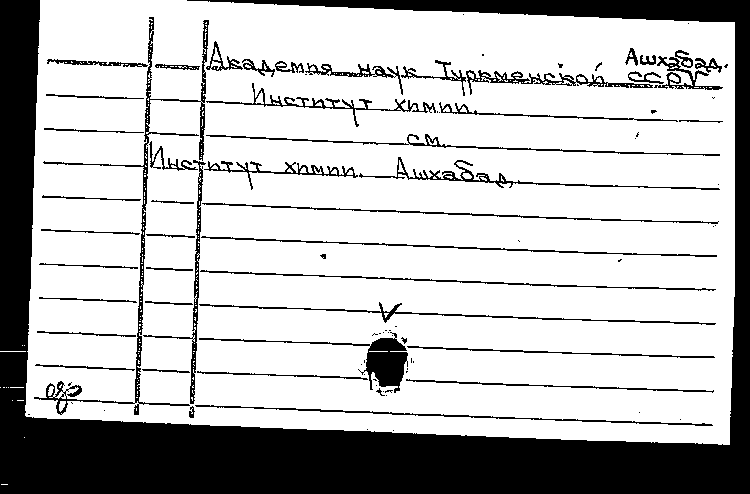 Академия наук Туркменской ССР. Ашхабад.
Институт химии.
см.
Институт химии. Ашхабад.